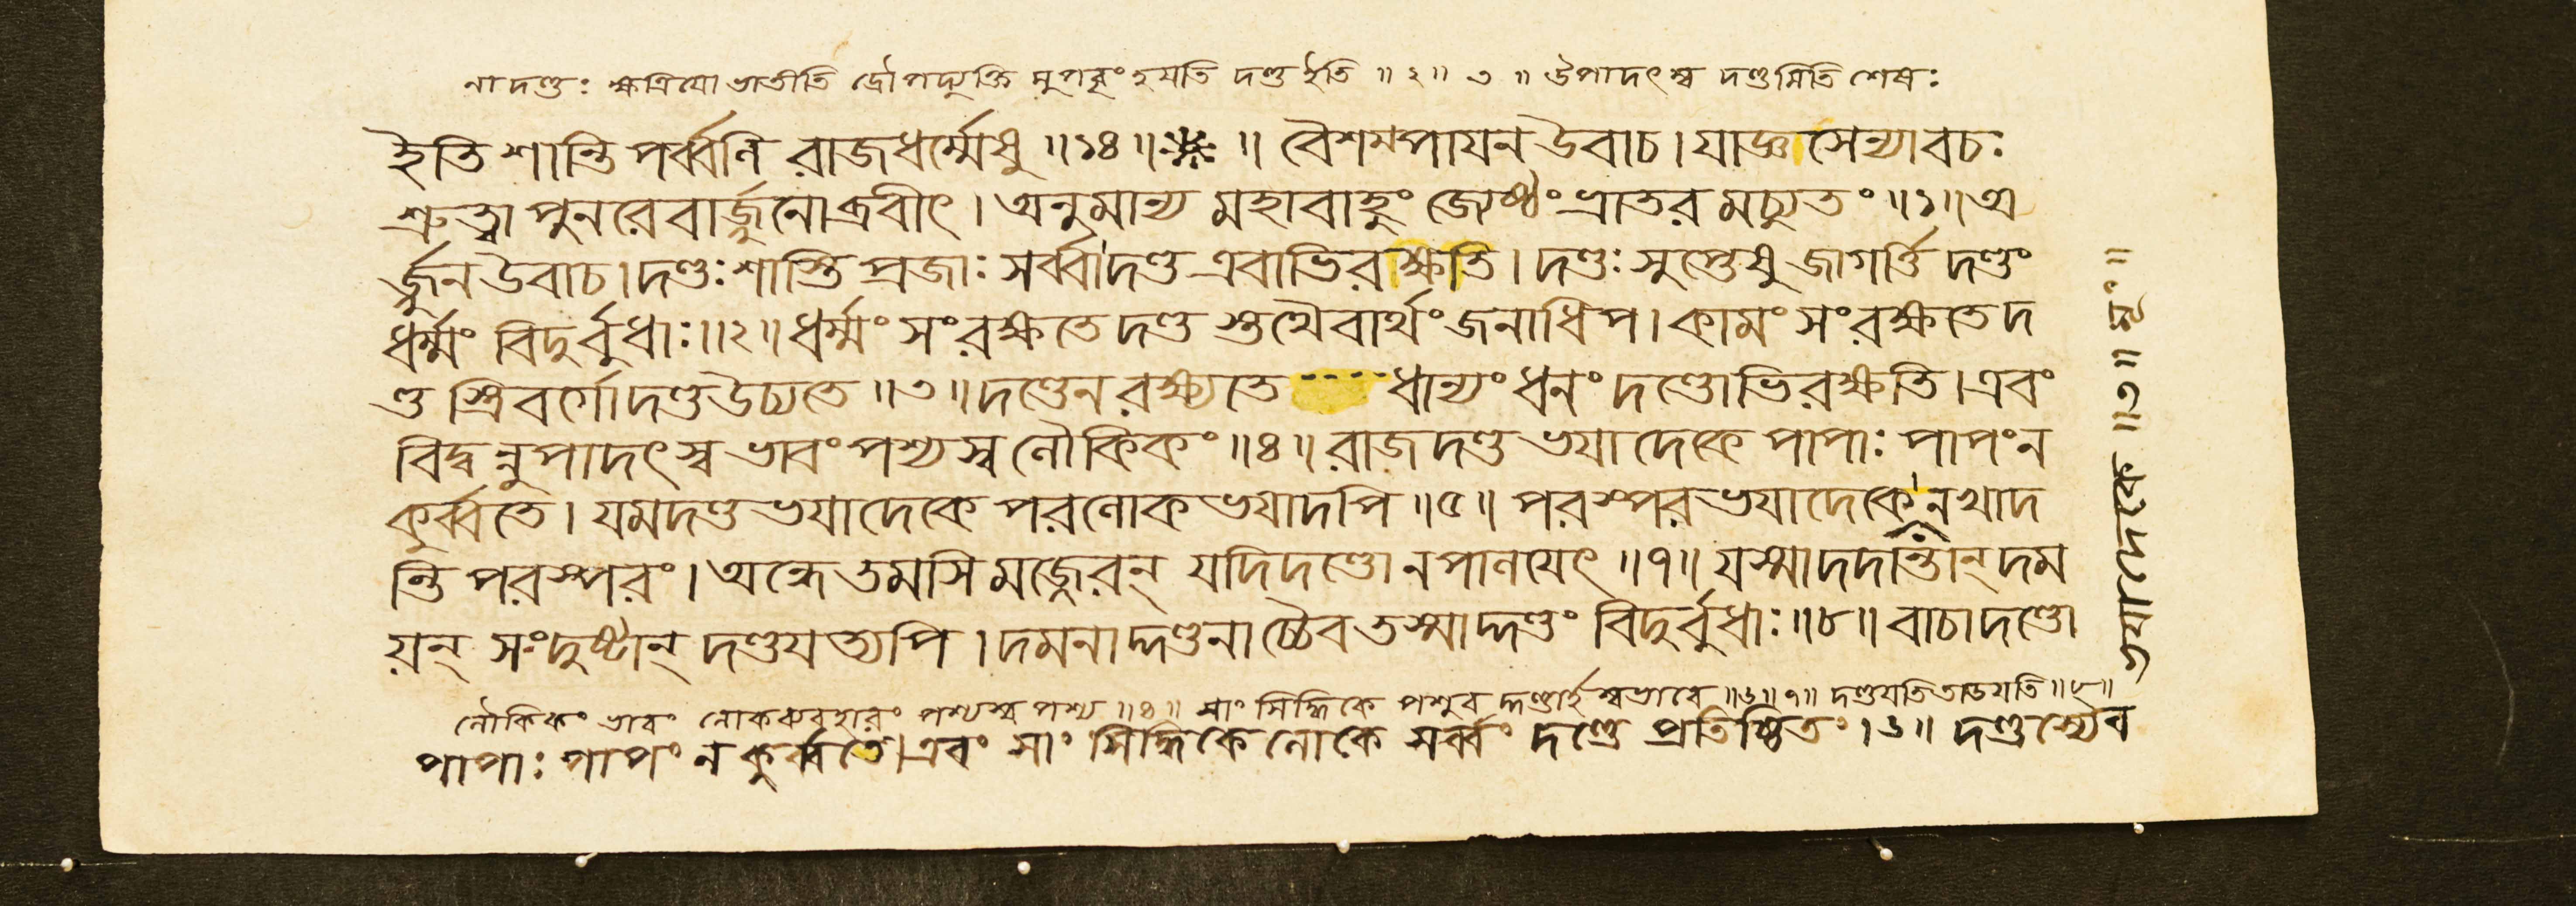 না দণ্ডঃ ক্ষত্রিয়ো ভাতীতি দ্রৌপদ্যুক্তি মুপবৃংহয়তি দণ্ড ইতি ॥ ২ ॥ ৩ ॥ উপাদৎস্ব দণ্ডমিতি শেষঃ
ইতি শান্তি পর্ব্বণি রাজধর্ম্মেষু ॥ ১৪ ॥ ॥ বৈশম্পায়ন উবাচ । যাজ্ঞসেন্যা বচঃ
শ্রুত্বা পুনরেবার্জ্জুনোব্রবীৎ । অনুমান্য মহাবাহুং জ্যেষ্ঠং ভ্রাতর মচ্যুতং ॥ ১ ॥ অ
র্জ্জুন উবাচ । দণ্ডঃ শাস্তি প্রজাঃ সর্ব্বা দণ্ড এবাভিরক্ষতি । দণ্ডঃ সুপ্তেষু জাগর্ত্তি দণ্ডং
ধর্ম্মং বিদুর্বুধাঃ ॥ ২ ॥ ধর্ম্মং সংরক্ষতে দণ্ড স্তথৈবার্থং জনাধিপ । কামং সংরক্ষতে দ
ণ্ড স্ত্রিবর্গো দণ্ড উচ্যতে ॥ ৩ ॥ দণ্ডেন রক্ষ্যতে ধান্যং ধনং দণ্ডোভিরক্ষতি । এবং
বিদ্বন্নুপাদৎস্ব ভাবং পশ্যস্ব লৌকিকং ॥ ৪ ॥ রাজদণ্ড ভয়াদেকে পাপাঃ পাপং ন
কুর্ব্বতে । যমদণ্ড ভয়াদেকে পরলোক ভয়াদপি ॥ ৫ ॥ পরস্পর ভয়াদেকে ন খাদ
ন্তি পরস্পরং । অন্ধে তমসি মজ্জেরন্ যদি দণ্ডো ন পালয়েৎ ॥ ৭ ॥ যস্মাদদান্তান্ দম
য়ন্ সংদুষ্টান্ দণ্ডয়ত্যপি । দমনাদ্দণ্ডনাচ্চৈব তস্মাদ্দণ্ডং বিদুর্বুধাঃ ॥ ৮ ॥ বাচা দণ্ডো
লৌকিকং ভাবং লোকব্যবহারং পশ্যস্ব পশ্য ॥ ৪ ॥ সাং সিদ্ধিকে পশুব দ্দণ্ডার্হ স্বভাবে ॥ ৬ ॥ ৭ ॥ দণ্ডয়তি তাডয়তি ॥ ৮ ॥
পাপাঃ পাপং ন কুর্ব্বতে । এবং সাং সিদ্ধিকে লোকে সর্ব্বং দণ্ডে প্রতিষ্ঠিতং । ৬ ॥ দণ্ডস্যৈব
ভয়াদেকে ॥ ৩ ॥